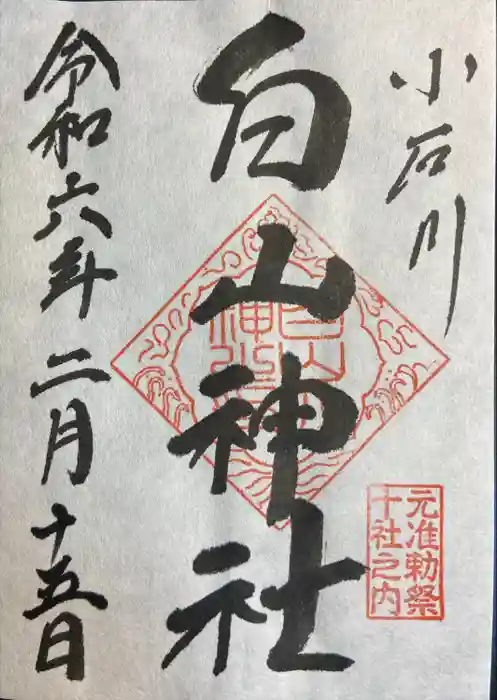 小石川
白山神社
元准勅祭
十社之内
令和六年二月十五日